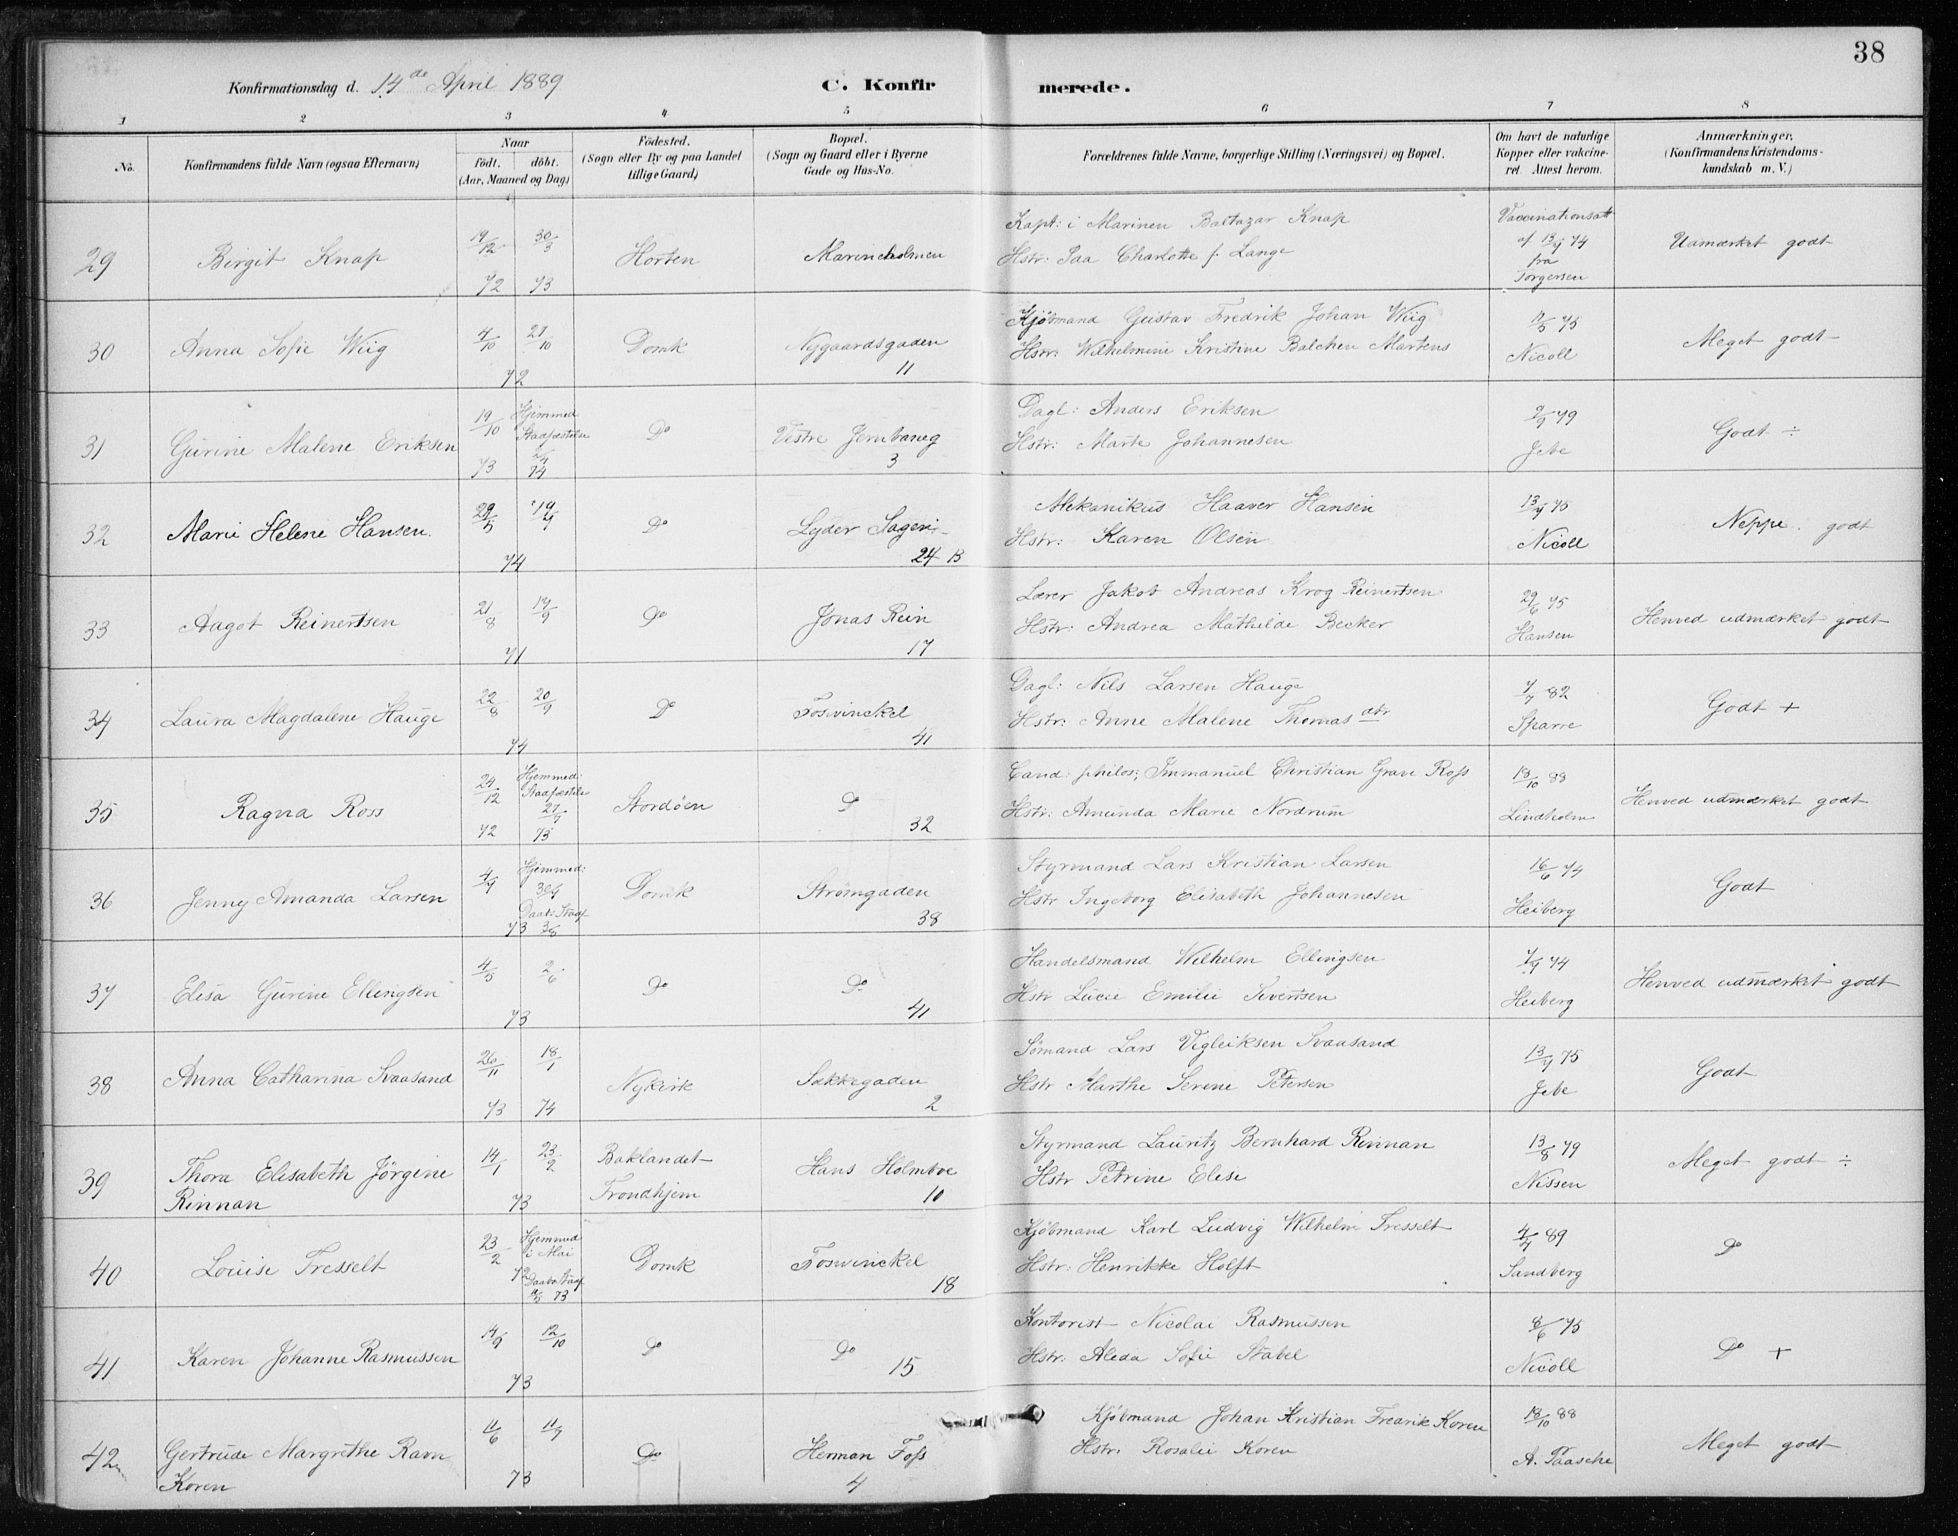 38
Konfirmationsdag d. 14de April 1889
C. Konfirmerede.
1 2 3 4 5 6 7 8
No.
Konfirmandens fulde Navn (ogsaa Efternavn)
Naar
födt. döbt.
(Aar, Maaned og Dag)
Födested.
(Sogn eller By og paa Landet
tillige Gaard)
Bopæl.
(Sogn og Gaard eller i Byerne
Gade og Hus-No.
Forældrenes fulde Navne, borgerlige Stilling (Næringsvei) og Bopæl.
Om havt de naturlige
Kopper eller vakcine-
ret. Attest herom.
Anmærkninger.
(Konfirmandens Kristendoms-
kundskab m. V.)
29 Birgit Knap
19/12 72 30/3 73
Horten
Marineholmen
Kapt: i Marinen Baltazar Knap
Hstr: Paa Charlotte f. Lange
Vaccinationsatt
af 13/4 74
fra
Torgersen
Uamærket godt
30 Anna Sofie Wiig
4/10 27/10 72
Domk
Nygaardsgaden
11
Kjøbmand Gustav Fredrik Johan Wiig
Hstr: Wilhelmine Kristine Balchen Martens
75
Nicoll
Meget godt
31 Gurine Malene Eriksen
19/10 73
Hjemmed
Stadfæstelse
74
Do
Vestre Jernbaneg
3
Dagl: Anders Eriksen
Hstr: Marte Johannesen
2/9 79
Jebe
Godt ÷
32 Marie Helene Hansen.
29/5 19/7 74
Do
Lyder Sagen:
24 B
Mekanikus Haaver Hansen
Hstr: Karen Olsen
13/4 75
Nicoll
Neppe godt
33 Aagot Reinertsen
21/8 17/9 71
Do
Jonas Rein
17
Lærer Jakob Andreas Krog Reinertsen
Hstr: Andrea Mathilde Becker
29/6 75
Hansen
Henved udmærket godt
34 Laura Magdalene Hauge
22/8 20/9 74
Do
Fosvinckel
41
Dagl: Nils Larsen Hauge
Hstr: Anne Malene Thomas dtr
7/7 82
Sparre
Godt +
35 Ragna Ross
24/12 72
Hjemmed:
Stadfæstelse
27/7 73
Stordöen
Do
32
Cand: philos: Immanuel Christian Grave Ross
Hstr: Amunda Marie Nordrum
13/10 88
Lindholm
Henved udmærket godt
36 Jenny Amanda Larsen
4/4 73
Hjemmed:
30/4
Daab: Stadf
3/8
Domk
Strömgaden
38
Styrmand Lars Kristian Larsen
Hstr Ingeborg Elisabeth Johannesen
16/6 74
Heiberg
Godt
37 Elisa Gurine Ellingsen
4/5 2/6 73
Do
Do
41
Handelsmand Wilhelm Ellingsen
Hstr Lucie Emilie Sivertsen
7/9 74
Heiberg
Henved udmærket godt
38 Anna Catharina Svaasand
26/11 73 18/1 74
Nykirk
Sækkegaden
2
Sömand Lars Vigleiksen Svaasand
Hstr Marthe Serene Petersen
13/4 75
Jebe
Godt
39 Thora Elisabeth Jörgine
Rinnan
14/1 23/2 73
Baklandet
Trondhjem
Hans Holmboe
10
Styrmand Lauritz Bernhard Rinnan
Hstr Petrine Elise
13/8 79
Nissen
Meget godt ÷
40 Louise Tresselt
23/2 72
Hjemmed
i Mai
Daabs Stadf
73
Domk
Fosvinckel
18
Kjöbmand Karl Ludvig Wilhelm Tresselt
Hstr: Henrikke Holft
4/4 89
Sandberg
Do
41 Karen Johanne Rasmussen
14/9 12/10 73
Do
Do
15
Kontorist Nicolai Rasmussen
Hstr: Aleda Sofie Stabel
8/6 75
Nicoll
Do +
42 Gertrude Margrethe Ravn
Koren
11/6 11/9 73
Do
Herman Foss
4
Kjöbmand Johan Kristian Fredrik Koren
Hstr: Rosalie Koren
13/10 88
A. Paasche
Meget godt